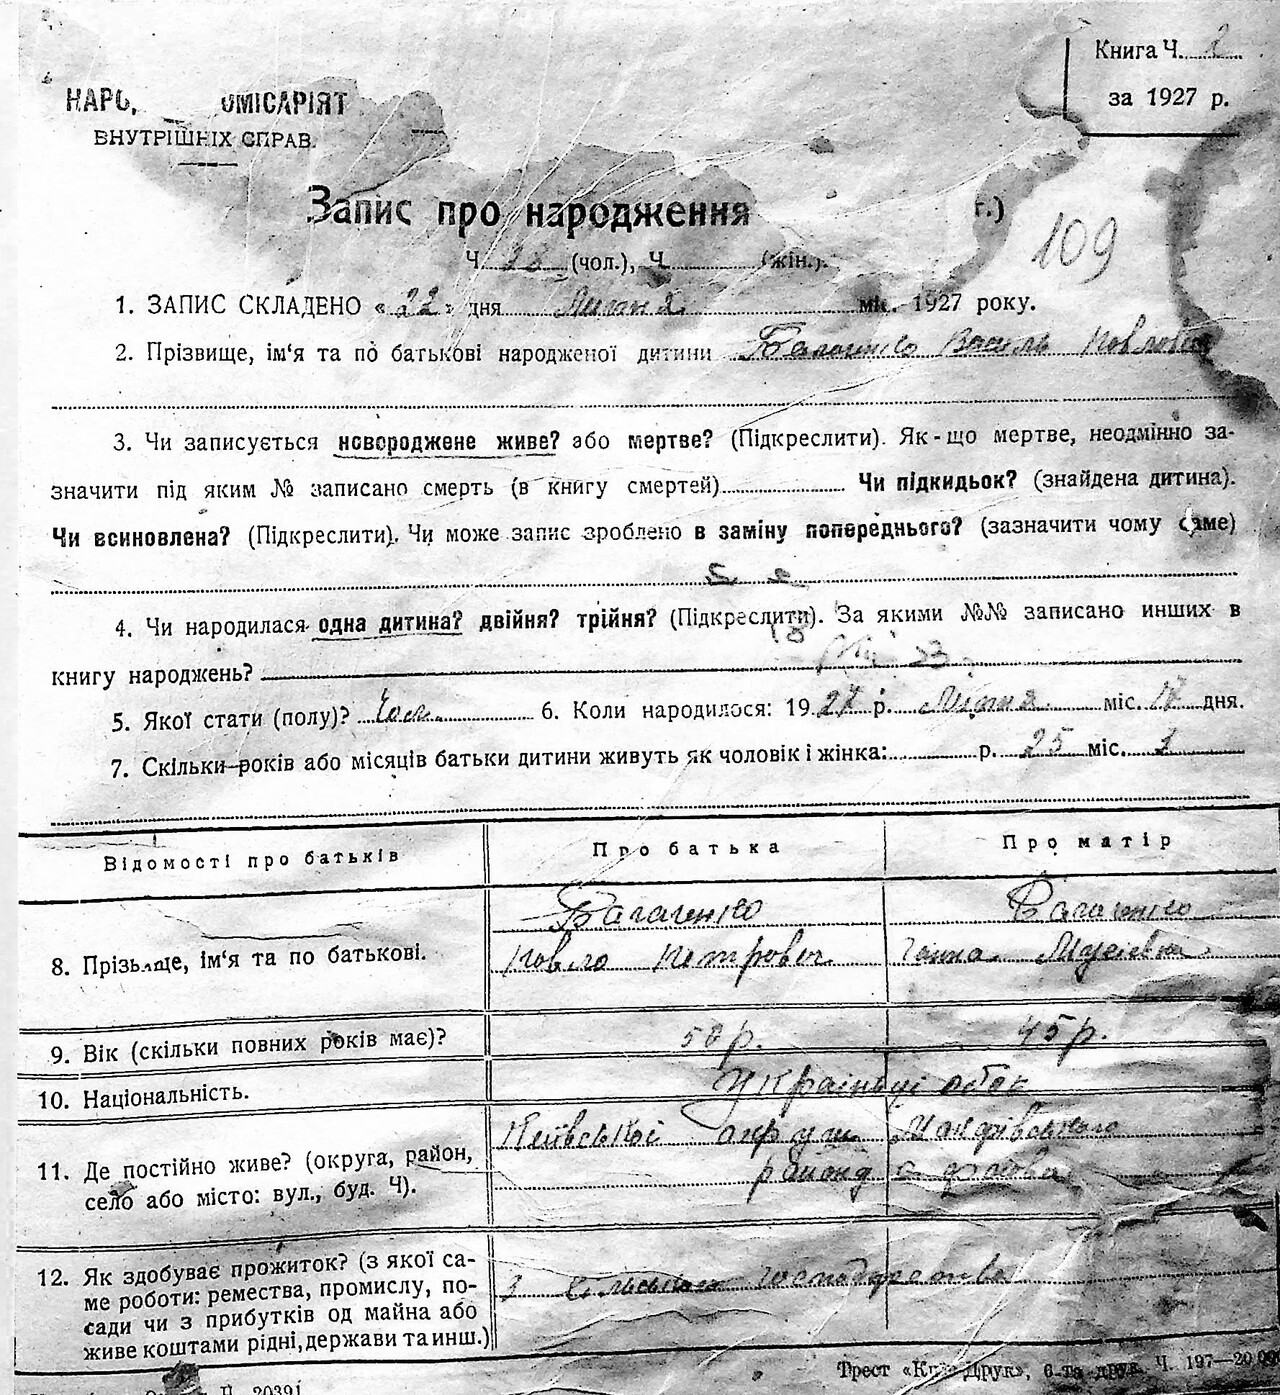 Книга Ч. 2
за 1927 р.
НАРО, ОМІСАРІЯТ
ВНУТРІШНІХ СПРАВ.
Запис про народження г.)
109
Ч. 28 (чол.), Ч. (жін.).
1. ЗАПИС СКЛАДЕНО «22» дня Липня міс. 1927 року.
2. Прізвище, ім‘я та по батькові народженої дитини Василь
3. Чи записується новороджене живе? або мертве? (Підкреслити). Як-що мертве, неодмінно за-
значити під яким № записано смерть (в книгу смертей) Чи підкидьок? (знайдена дитина).
Чи всиновлена? (Підкреслити). Чи може запис зроблено в заміну попереднього? (зазначити чому саме)
4. Чи народилася одна дитина? двійня? трійня? (Підкреслити). За якими №№ записано инших в
книгу народжень?
5. Якої стати (полу)? Чол. 6. Коли народилося: 1927 р. Липня міс. 17 дня.
7. Скільки років або місяців батьки дитини живуть як чоловік і жінка: р. 25 міс. 1
Відомості про батьків Про батька Про матір
Багаченко Багаченко
8. Прізьище, ім‘я та по батькові. Павло Петрович Ганна Мусіївна
9. Вік (скільки повних років має)? 50р. 45р.
10. Національність. Українці обоє
Київської округи Макарівського
11. Де постійно живе? (округа, район, району с.
село або місто: вул., буд. Ч).
12. Як здобуває прожиток? (з якої са- З сільського господарства
ме роботи: ремества, промислу, по-
сади чи з прибутків од майна або
живе коштами рідні, держави та инш.)
Трест «Київ-Друк», 6-та друк. Ч. 197—20.000
20391